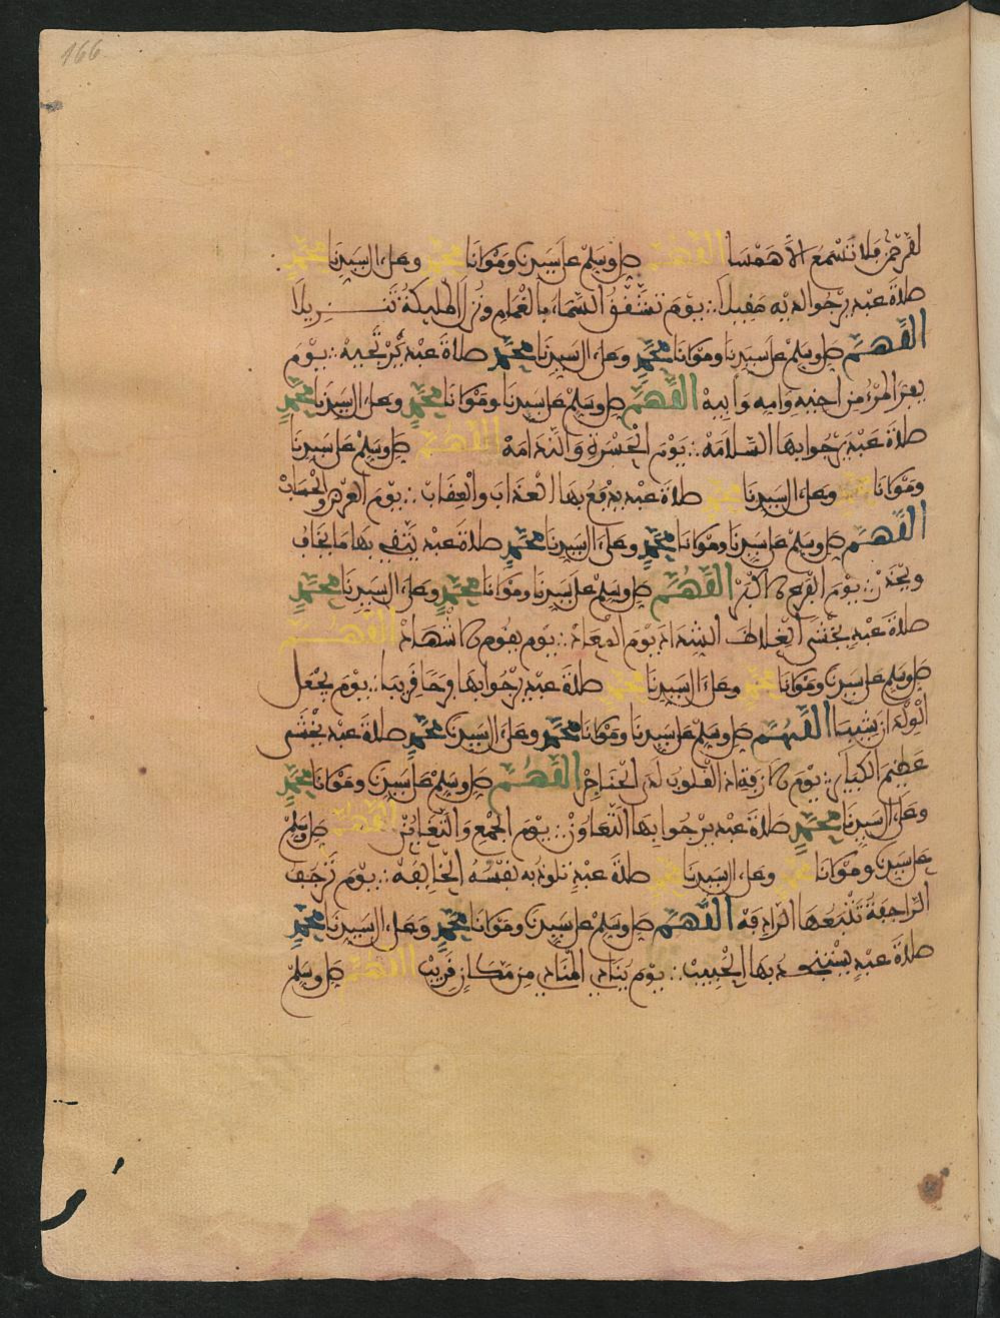 166
للرحمن فلا تسمع الا همسا اللهم صل وسلم على سيدنا ومولانا محمد وعلى ال سيدنا محمد
صلاة عبد يرجوا لديه مقيلا يوم تشقق السماء بالغمام ونزل المليكة تنزيلا
اللهم صل وسلم على سيدنا ومولانا محمد وعلى ال سيدنا محمد صلاة عبد يوم
يفر المرء من اخيه وامه وابيه اللهم صل وسلم على سيدنا ومولانا محمد وعلى ال سيدنا محمد
صلاة عبد يرجوا بها السلامة يوم الحسرة والندامة اللهم صل وسلم على سيدنا
ومولانا محمد وعلى ال سيدنا محمد صلاة عبد يدفع بها العذاب والعقاب يوم العرض والحساب
اللهم صل وسلم على سيدنا ومولانا محمد وعلى ال سيدنا محمد صلاة عبد يتقي بها ما يخاف
ويحذر يوم الفزع الاكبر اللهم صل وسلم على سيدنا ومولانا محمد وعلى ال سيدنا محمد
صلاة عبد يخشى الغلاظ الشداد يوم المعاد يوم يقوم الاشهاد اللهم
صل وسلم على سيدنا ومولانا محمد وعلى ال سيدنا محمد صلاة عبد يرجوا بها فرجا قريبا يوم يجعل
الولدان شيبا اللهم صل وسلم على سيدنا ومولانا محمد وعلى ال سيدنا محمد صلاة عبد يخشى
عظيم الكباير يوم الازفة اذ القلوب لدى الحناجر اللهم صل وسلم على سيدنا ومولانا محمد
وعلى ال سيدنا محمد صلاة عبد يرجوا بها التجاوز يوم الجمع والتغابن اللهم صل وسلم
على سيدنا ومولانا محمد وعلى ال سيدنا محمد صلاة عبد تلوذ به نفسه الخايفة يوم ترجف
الراجفة تتبعها الرادفة اللهم صل وسلم على سيدنا ومولانا محمد وعلى ال سيدنا محمد
صلاة عبد يستنجد بها الحبيب يوم يناد المناد من مكان قريب اللهم صل وسلم